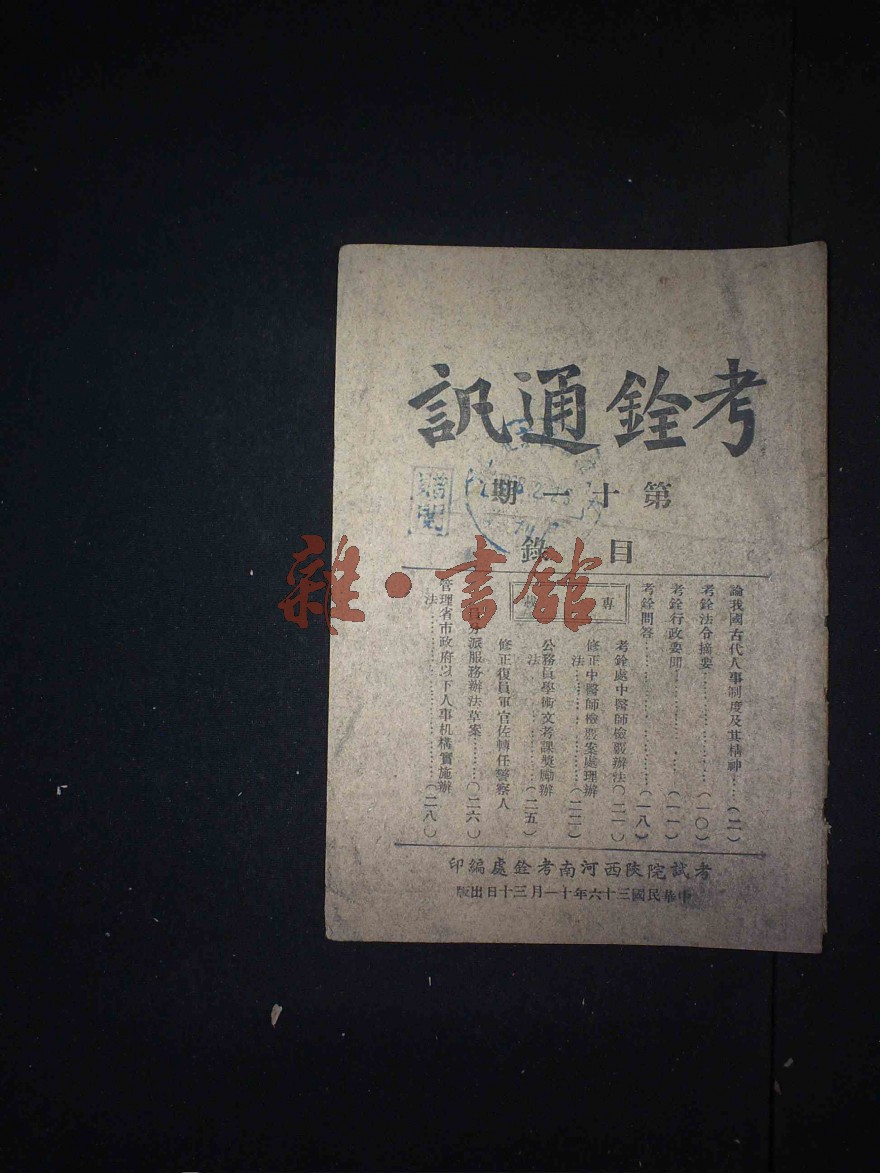 考銓通訊
第十一期
目錄
論我國古代人事制度及其精神……(二)
考銓法令摘要……………(一〇)
考銓行政要聞……………(一一)
考銓問答……………(一八)
專
考銓處中醫師檢覈辦法(二一)
修正中醫師檢覈案處理辦
法……………(二二)
公務員學術文考課獎勵辦
法……………(二五)
修正復員軍官佐轉任警察人
分派服務辦法草案……(二六)
管理省市政府以下人事机構實施辦
法……………(二八)
考試院陝西河南考銓處編印
中華民國三十六年十一月三十日出版
贈閱
雜·書館